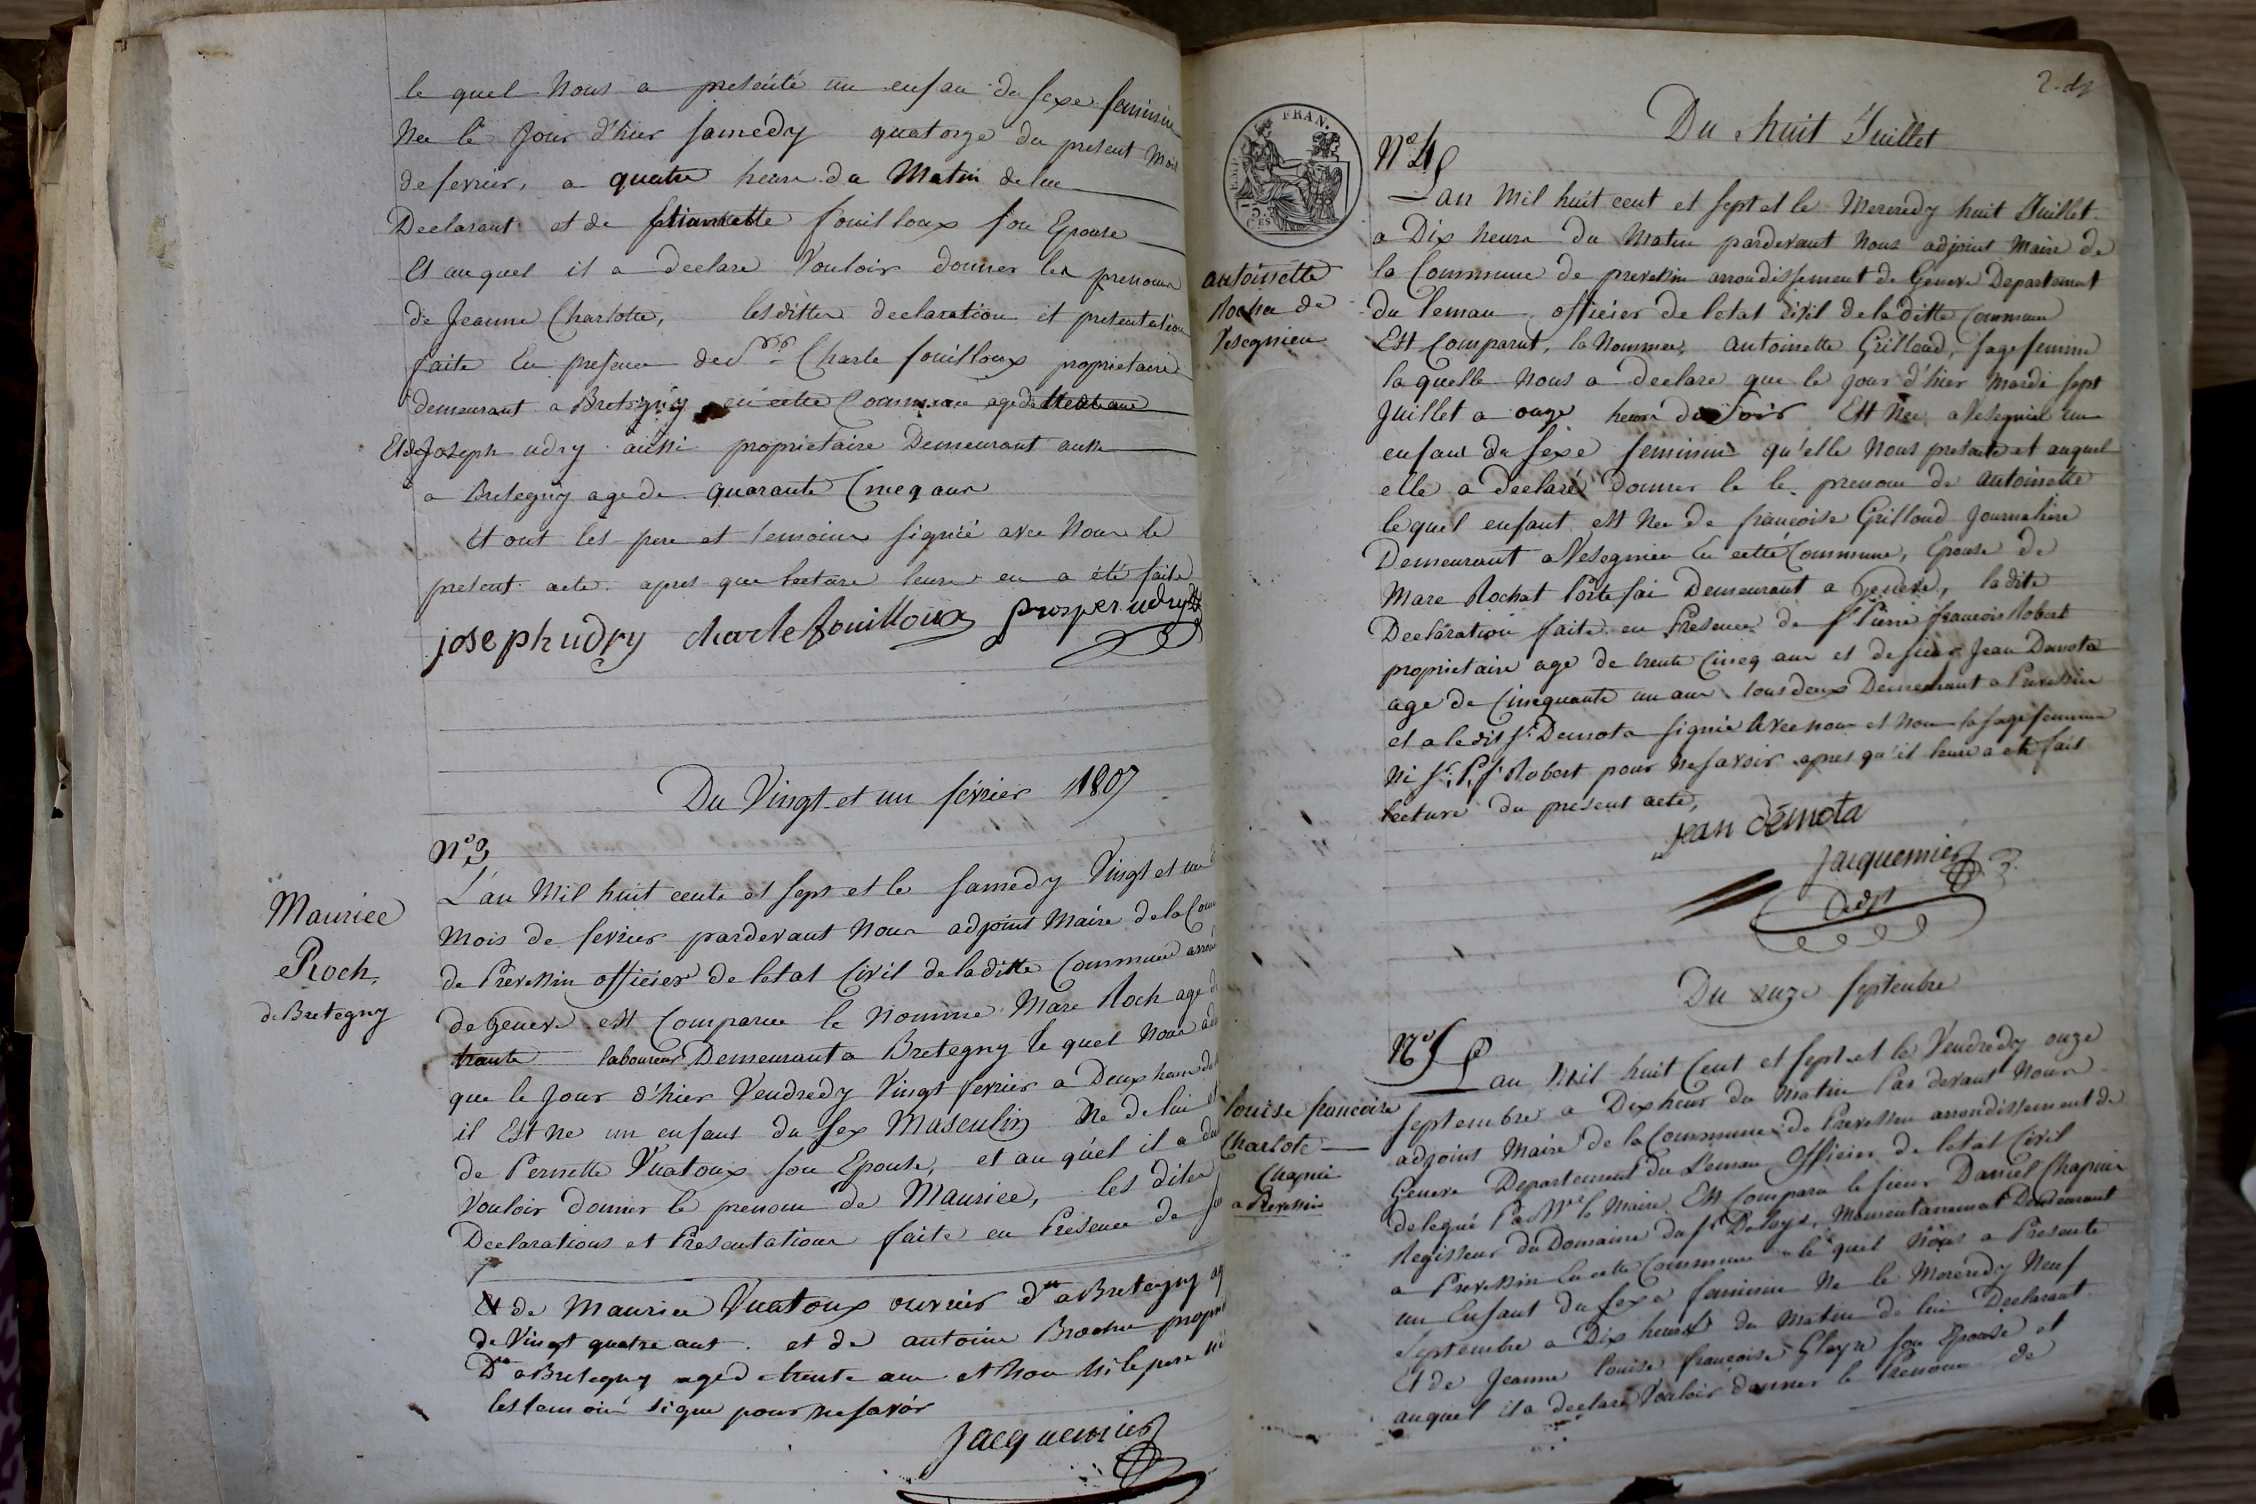 le quel Nous a presenté un enfan du sexe feminin
Nee le jour d'hier samedy quatorze du present Mois
de fevrier, a quatre heure du Matin de lui
Declarant et de fouilloux son Epouse
Et auquel il a declare Vouloir donner les prenoms
de Jeanne Charlotte, lesdittes declaration et presentation
faite En presence de Charle fouilloux proprietaire
demeurant a Bretegny en cette Commune agé de
Et de Joseph udry aussi proprietaire Demeurant aussi
a Bretegny age de quarante Cincq ans
Et ont les pere et temoins signié avec Nous le
present acte apres que lecture leurs en a été faite
joseph udry charle fouilloux prosper udry
Du Vingt et un février 1807
N° 3
Maurice
Roch,
de Bretegny
L'an Mil huit cents et sept et le samedy Vingt et un
Mois de fevrier pardevant Nous adjoint Maire de la Com
de Prevessin officier de letat Civil de laditte Commune arron
de geneve est Comparu le Nomme Marc Roch age d
trante laboureur Demeurant a Bretegny le quel Nous a
que le Jour d'hier Vendredy Vingt fevrier a Deux heure
il Est Ne un enfant du sex Masculin Ne de lui
de Pernette Vuatoux son Epouse, et au quel il a
Vouloir donner le prenom de Maurice, les dites
Declarations et Presentations faite en Presence de
Et de Maurice Vuatoux ouvrier dt a Bretegny ag
de Vingt quatre ans et de antoine Brochu propri
Dt a Bretegny age de trente ans et Non Ni le pere ni
les temoins signe pour ne savoir
Jacquemier
Du huit Juillet
N° 4
antoinette
Rochat de
Vesegnien
L'an Mil huit cent et sept et le Mercredy huit Juillet
a Dix heure du Matin pardevant Nous adjoint Maire de
la Commune de prevessin arrondissement de Geneve Departement
du leman, officier de letat civil de laditte Commune
Est Comparut, la Nommée, antoinette Grilloud, sage femme
laquelle Nous a declare que le jour d'hier Mardi sept
Juillet a onze heure du Soir Est Nee a Vesegnien un
enfant du sexe feminin qu'elle Nous presente et auquel
elle a declaré donner le le prenom de antoinette
lequel enfant est Nee de francoise Grilloud Journaliere
Demeurant a Vesegnien En cette Commune, Epouse de
Marc Rochat Porte fai Demeurant a Geneve, ladite
Declaration faite en Presence de Sr Pierre francois Robert
proprietaire age de trente Cincq ans et de sieur Jean Demota
age de Cincquante un ans tous deux Demeurant a Prevessin
et a ledit Sr Demota signié avec nous et Non la sage femme
Ni Sr P. f. Robert pour Ne savoir apres qu'il leurs a eté fait
lecture du present acte,
jean démota
Jacquemier
adjt
Du onze septembre
N° 5
louise francoise
Charlote
Chapuis
a Prevessin
L'an Mil huit Cent et sept et le Vendredy onze
septembre a Dix heur du Matin Par devant Nous
adjoint Maire de la Commune de Prevessin arrondissement de
Geneve Departement du Leman Officier de letat Civil
delegué Par Mr le Maire Est Comparu le sieur Daniel Chapuis
Regisseur du Domaine du Sr Momentanement Demeurant
a Prevessin En cette Commune le quel Nous a Presente
un Enfant du sexe feminin Ne le Mercredy Neuf
septembre a Dix heures du Matin de lui Declarant
Et de Jeanne louise francoise Glayre son Epouse et
auquel il a declaré Vouloir donner le Prenom de